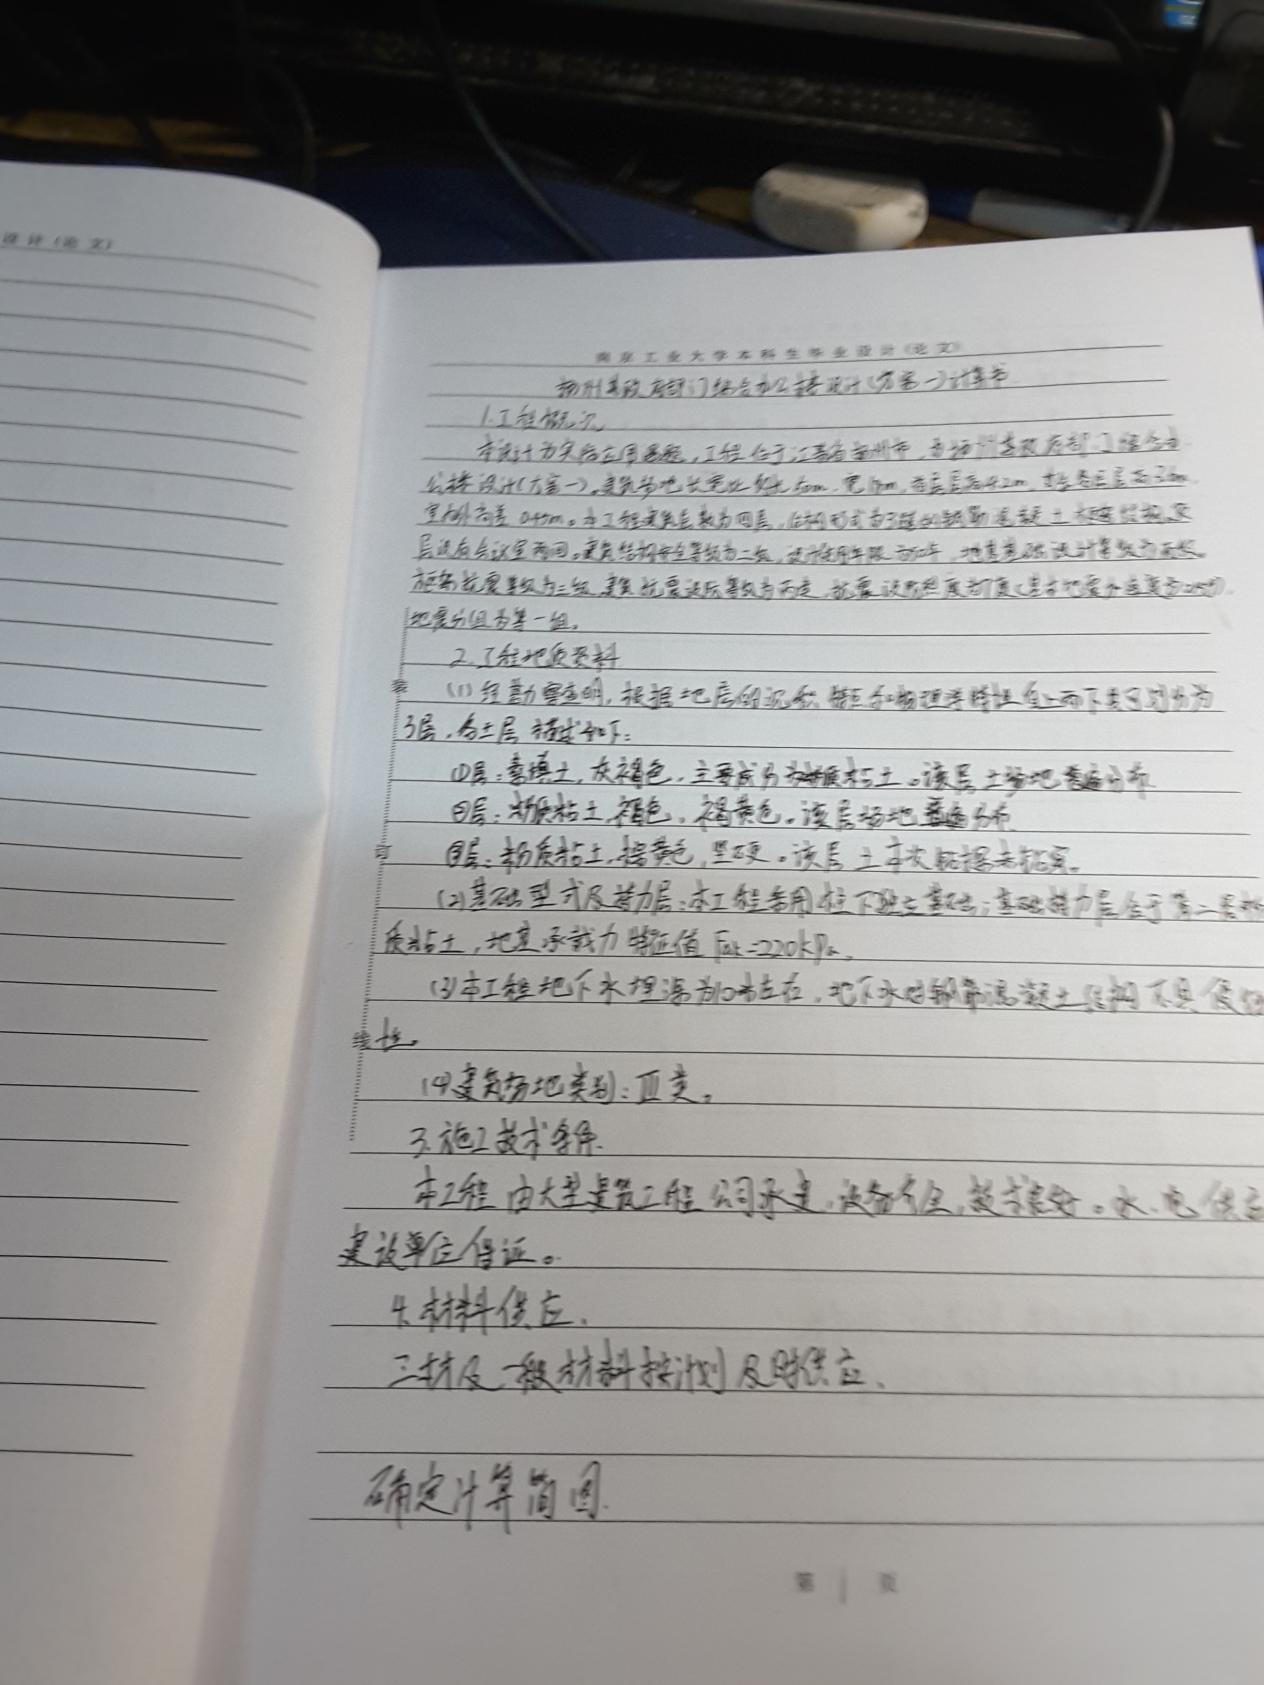 设计（论文）
南京工业大学本科生毕业设计（论文）
扬州某政府部门综合办公楼设计（方案一）计算书
1.工程概况
本设计为实际应用课题，工程位于江苏省扬州市，为扬州某政府部门综合办
公楼设计（方案一）。建筑场地
室内外高差0.45m。本工程建筑层数为四层，结构形式为钢筋混凝土框架结构，
层设有会议室两间。建筑结构安全等级为二级，设计使用年限为50年，地基基础设计等级为丙级。
框架抗震等级为三级，建筑抗震设防等级为丙类，抗震设防烈度为7度（基本地震加速度为
地震分组为第一组。
2.工程地质资料
（1）经勘察查明，根据地层的沉积特征和物理学特性自上而下共可划分为
3层，各土层描述如下：
①层：素填土，灰褐色，主要成分为粉质粘土。该层土场地普遍分布
②层：粉质粘土，褐色，褐黄色。该层场地普遍分布
③层：粉质粘土，褐黄色，坚硬。该层土本次钻探未钻穿。
（2）基础型式及持力层：本工程采用柱下独立基础；基础持力层位于第二层粉
质粘土，地基承载力特征值fak=220kPa。
（3）本工程地下水埋深为10米左右，地下水对钢筋混凝土结构不具侵蚀
性。
（4）建筑场地类别：Ⅲ类。
3.施工技术条件.
本工程由大型建筑工程公司承建，设备齐全，技术良好。水、电供应
建设单位保证。
4.材料供应.
三材及一般材料按计划及时供应.
确定计算简图.
装
订
线
第1页